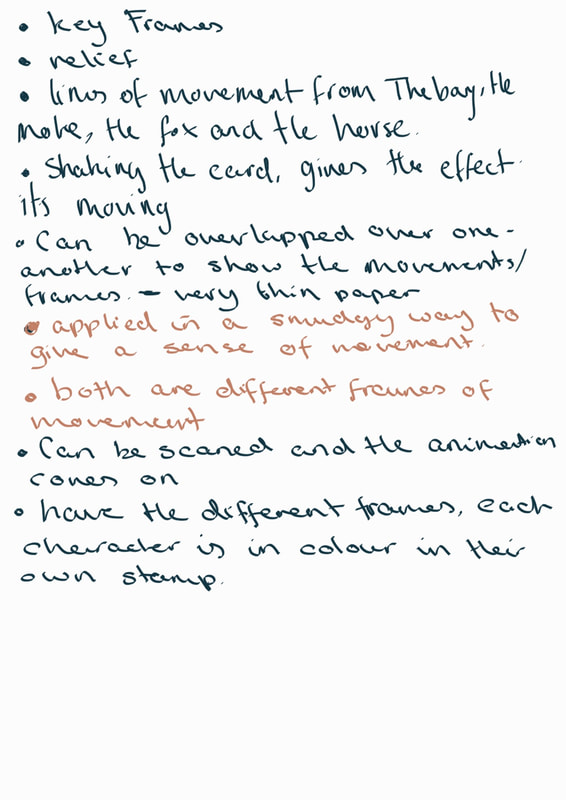 • key Frames
• relief
• lines of movement from The boy, the
mole, the fox and the horse.
• Shaking the card, gives the effect
its moving
• Can be overlapped over one-
another to show the movements/
frames. – very thin paper
• applied in a smudgy way to
give a sense of movement.
• both are different frames of
movement
• Can be scaned and the animation
comes on
• have the different frames, each
character is in colour in their
own stamp.